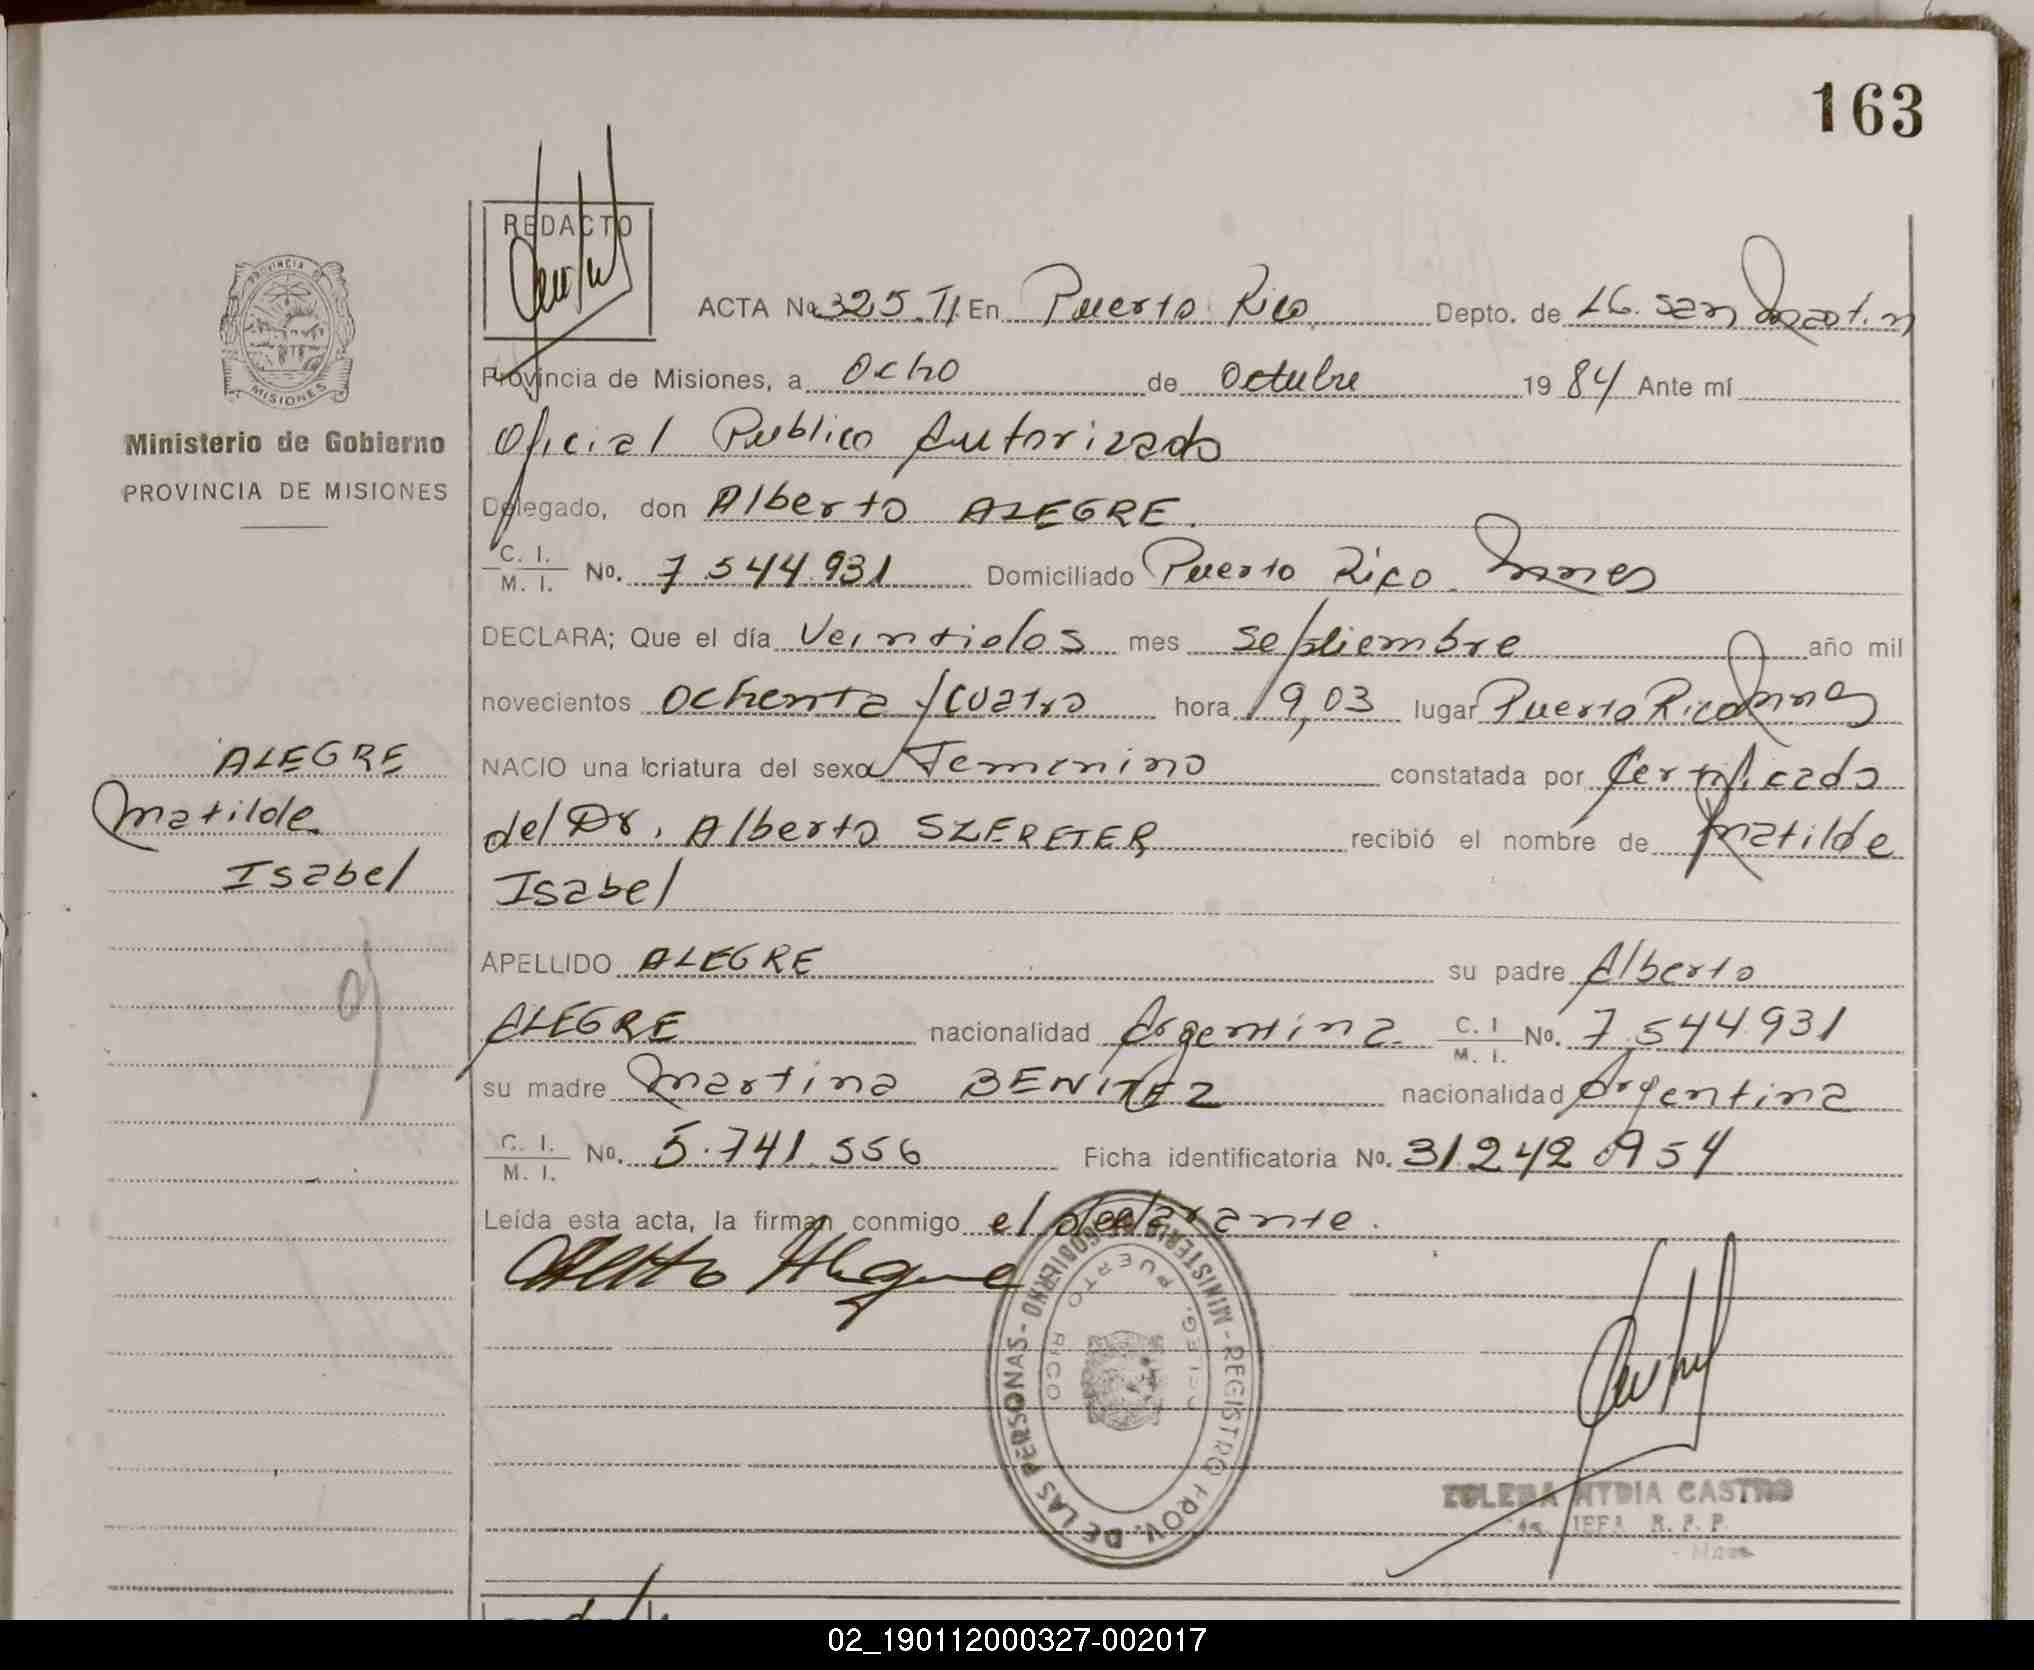 163
REDACTO
ACTA No. 325 TI. En Puerto Rico Depto. de LG. San Martin
Provincia de Misiones, a Ocho de Octubre 19 84 Ante mí
Oficial Publico Autorizado
Delegado, don Alberto ALEGRE.
C. I. / M. I. No. 7.544.931 Domiciliado Puerto Rico Mnes
DECLARA; Que el día Veintidos mes septiembre año mil
novecientos Ochenta y cuatro hora 19,03 lugar Puerto Rico Mnes
NACIO una criatura del sexo Femenino constatada por Certificado
del Dr. Alberto SZERETER recibió el nombre de Matilde
Isabel
APELLIDO ALEGRE su padre Alberto
ALEGRE nacionalidad Argentina. C. I / M. I. No. 7.544.931
su madre Martina BENITEZ nacionalidad Argentina
C. I. / M. I. No. 5.741.556 Ficha identificatoria No. 31.242.954
Leída esta acta, la firman conmigo el declarante.
Alberto Alegre
MISIONES
Ministerio de Gobierno
PROVINCIA DE MISIONES
ALEGRE
Matilde
Isabel
MINISTERIO DE GOBIERNO - REGISTRO PROV. DE LAS PERSONAS -
PUERTO RICO
CASTRO
R. P. P.
02_190112000327-002017